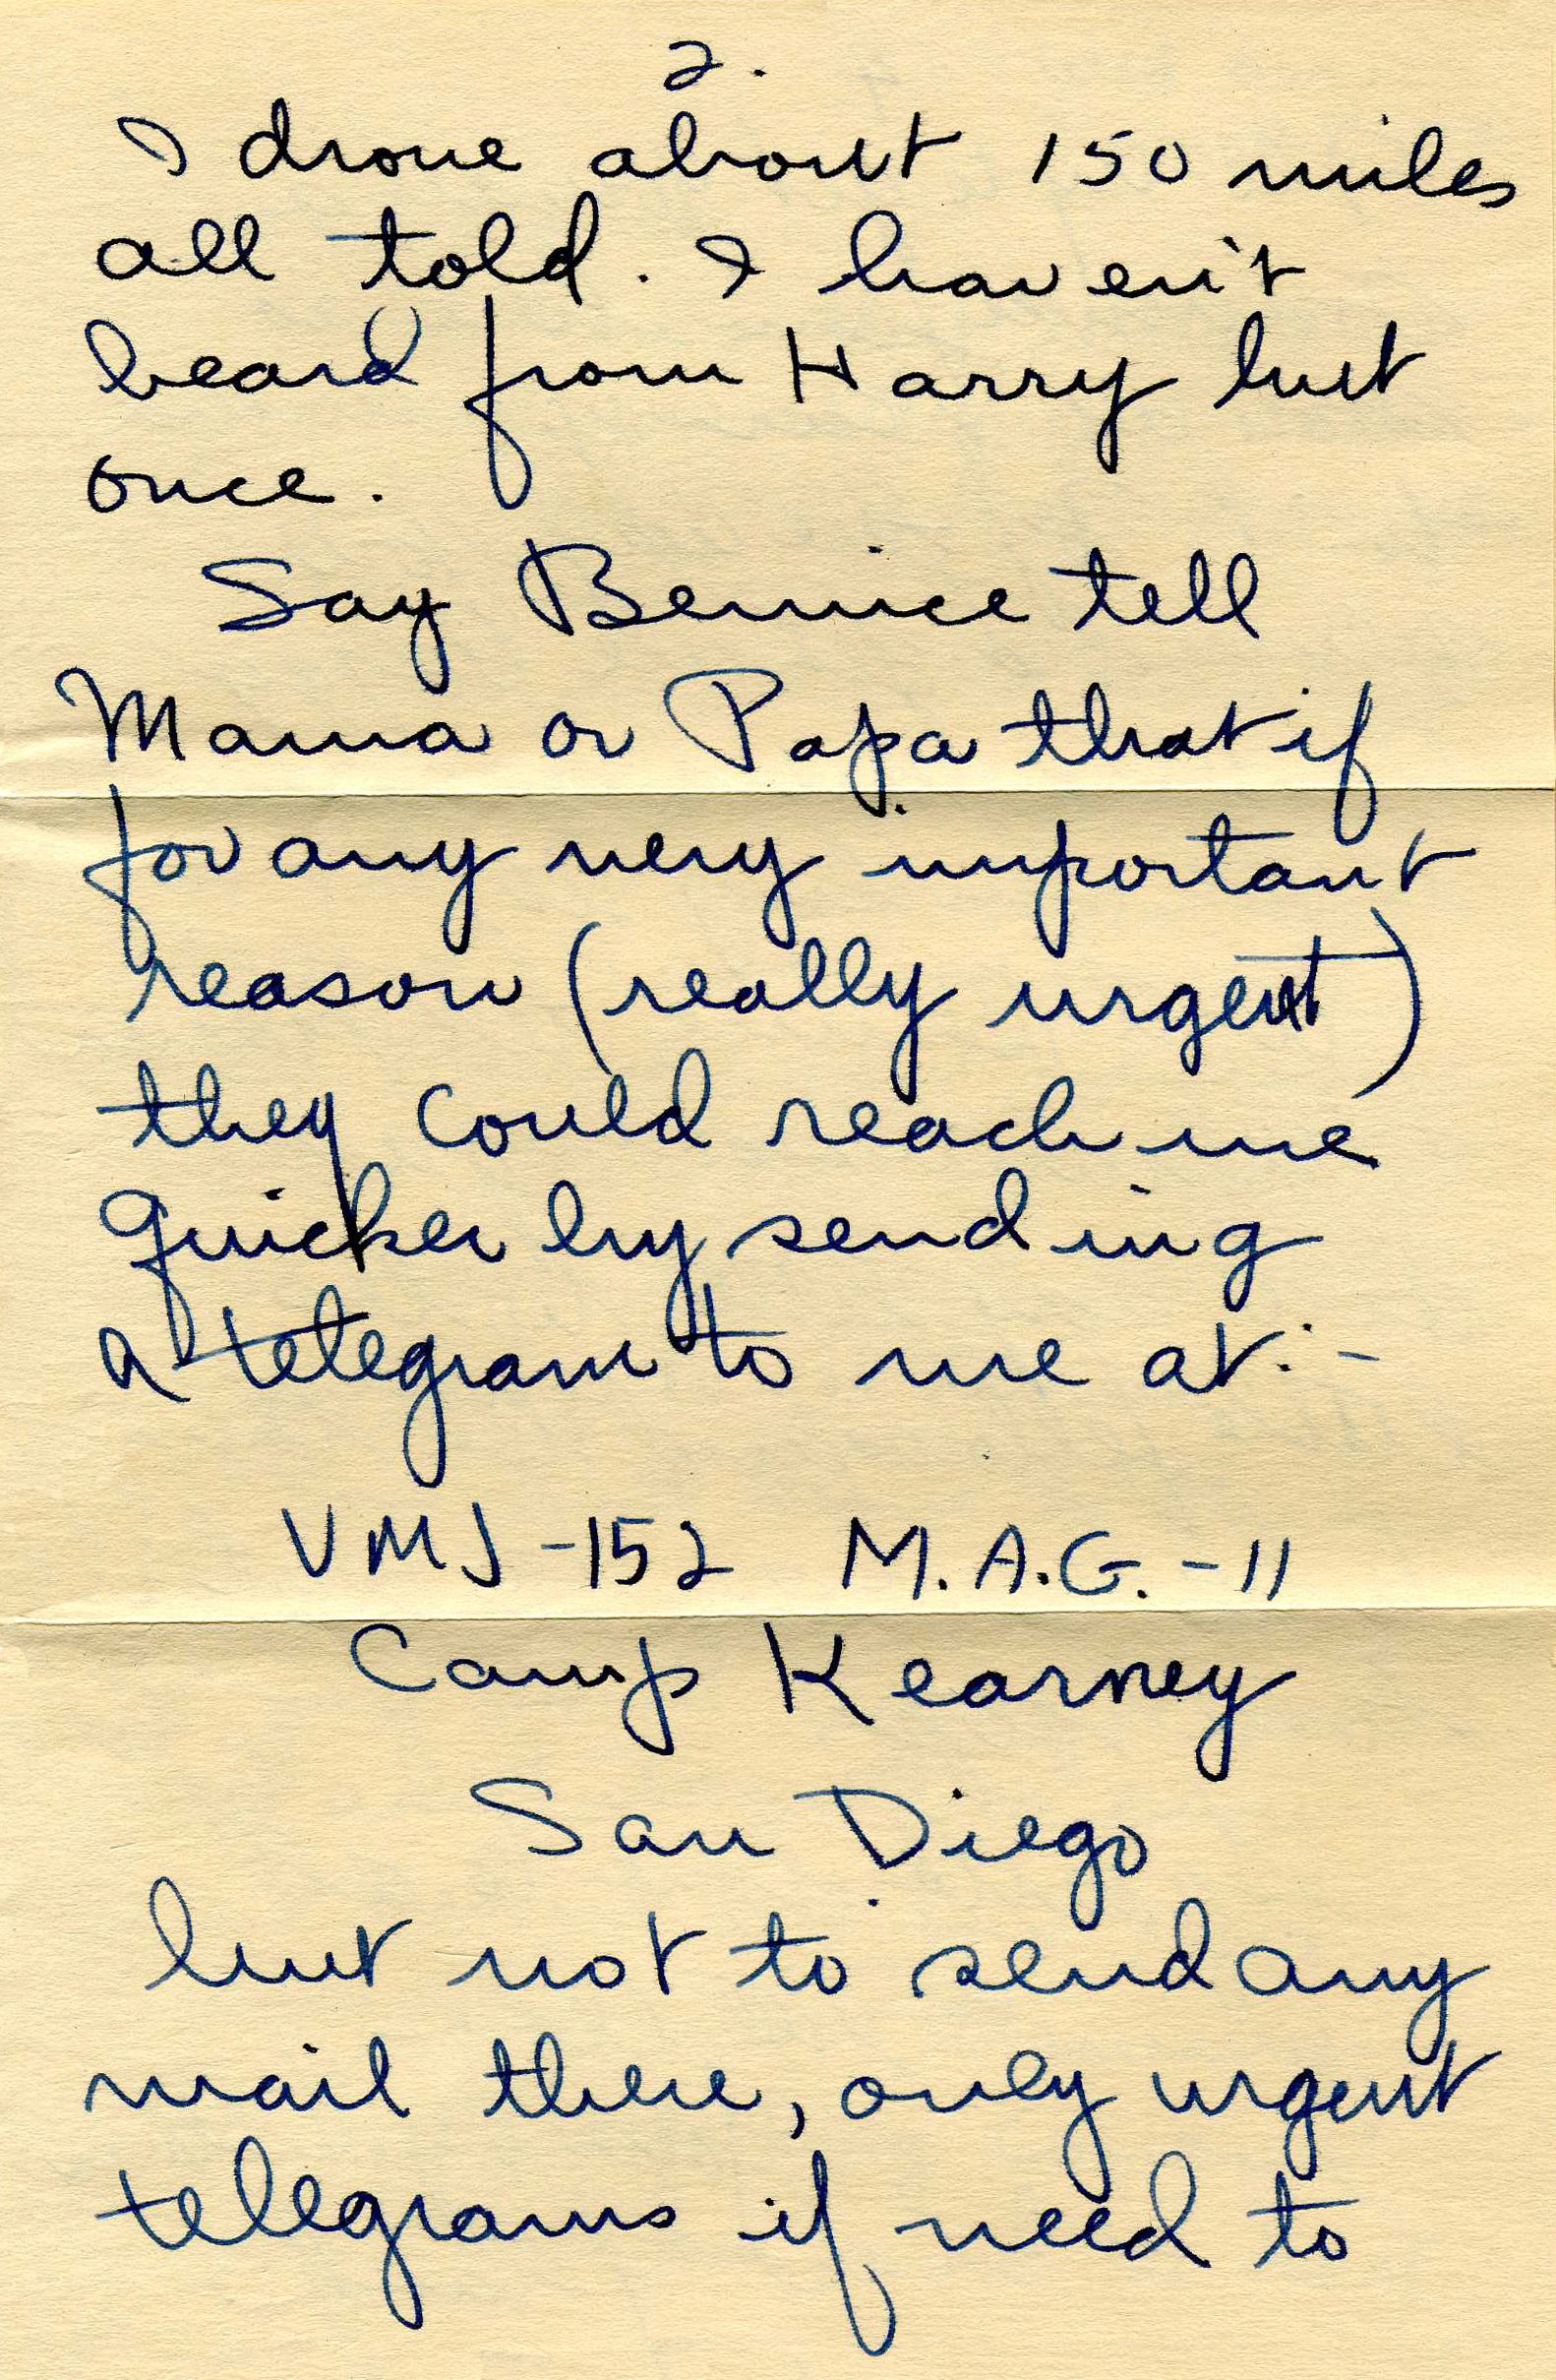 2.
I drove about 150 miles
all told. I haven't
heard from Harry but
once.
Say Bernice tell
Mama or Papa that if
for any very important
reason (really urgent)
they could reach me
quicker by sending
a telegram to me at:-
VMJ-152 M.A.G.-11
Camp Kearney
San Diego
but not to send any
mail there, only urgent
telegrams if need to